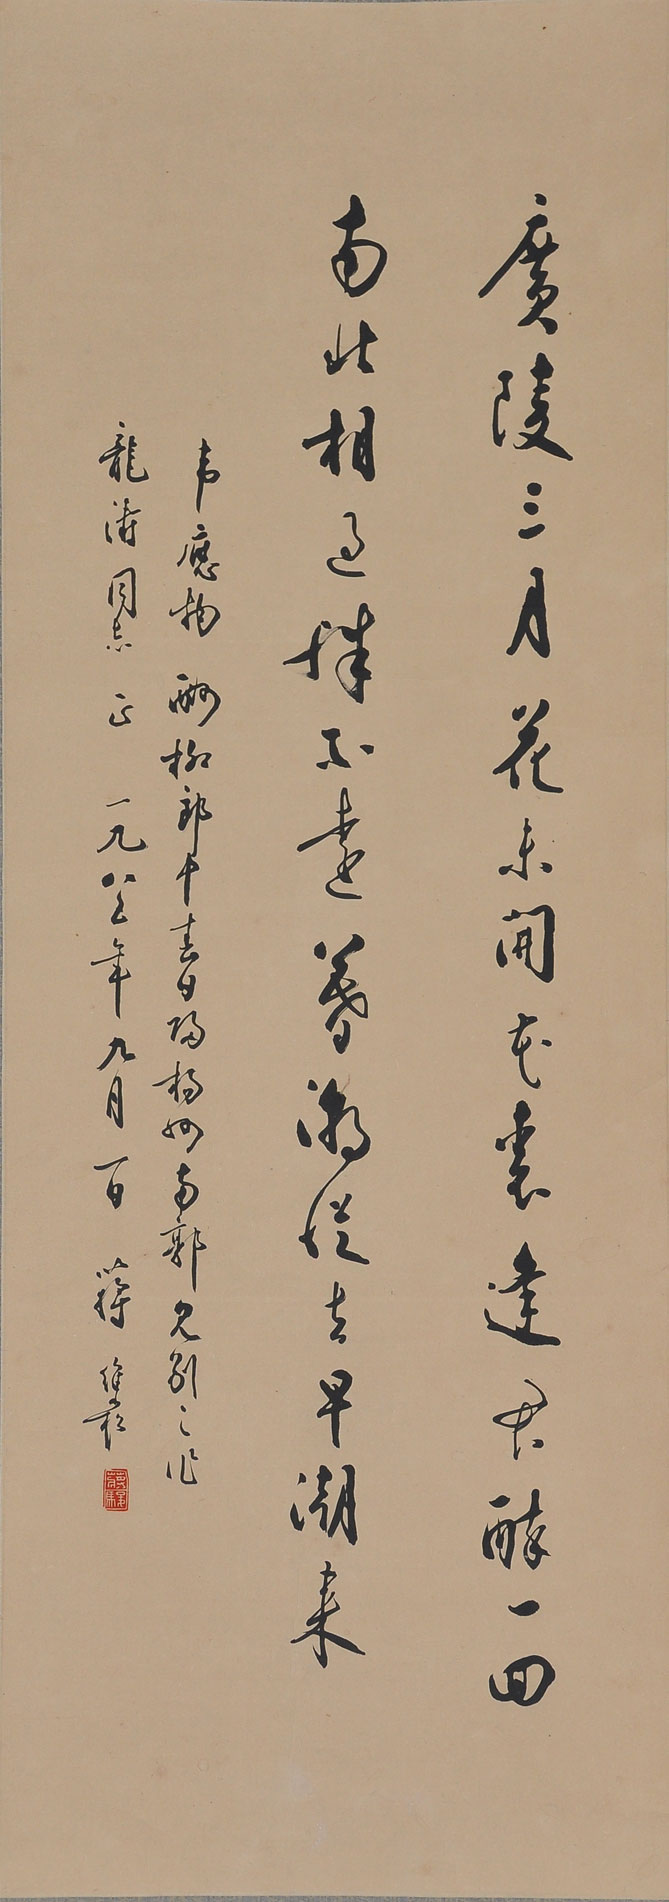 廣陵三月花未開花裏逢君醉一回
南北相過殊不遠暮潮從去早潮来
韋應物 酬柳郎中春日歸楊州南郭見別之作
龍濤同志 正 一九八五年九月一日 蔣維崧